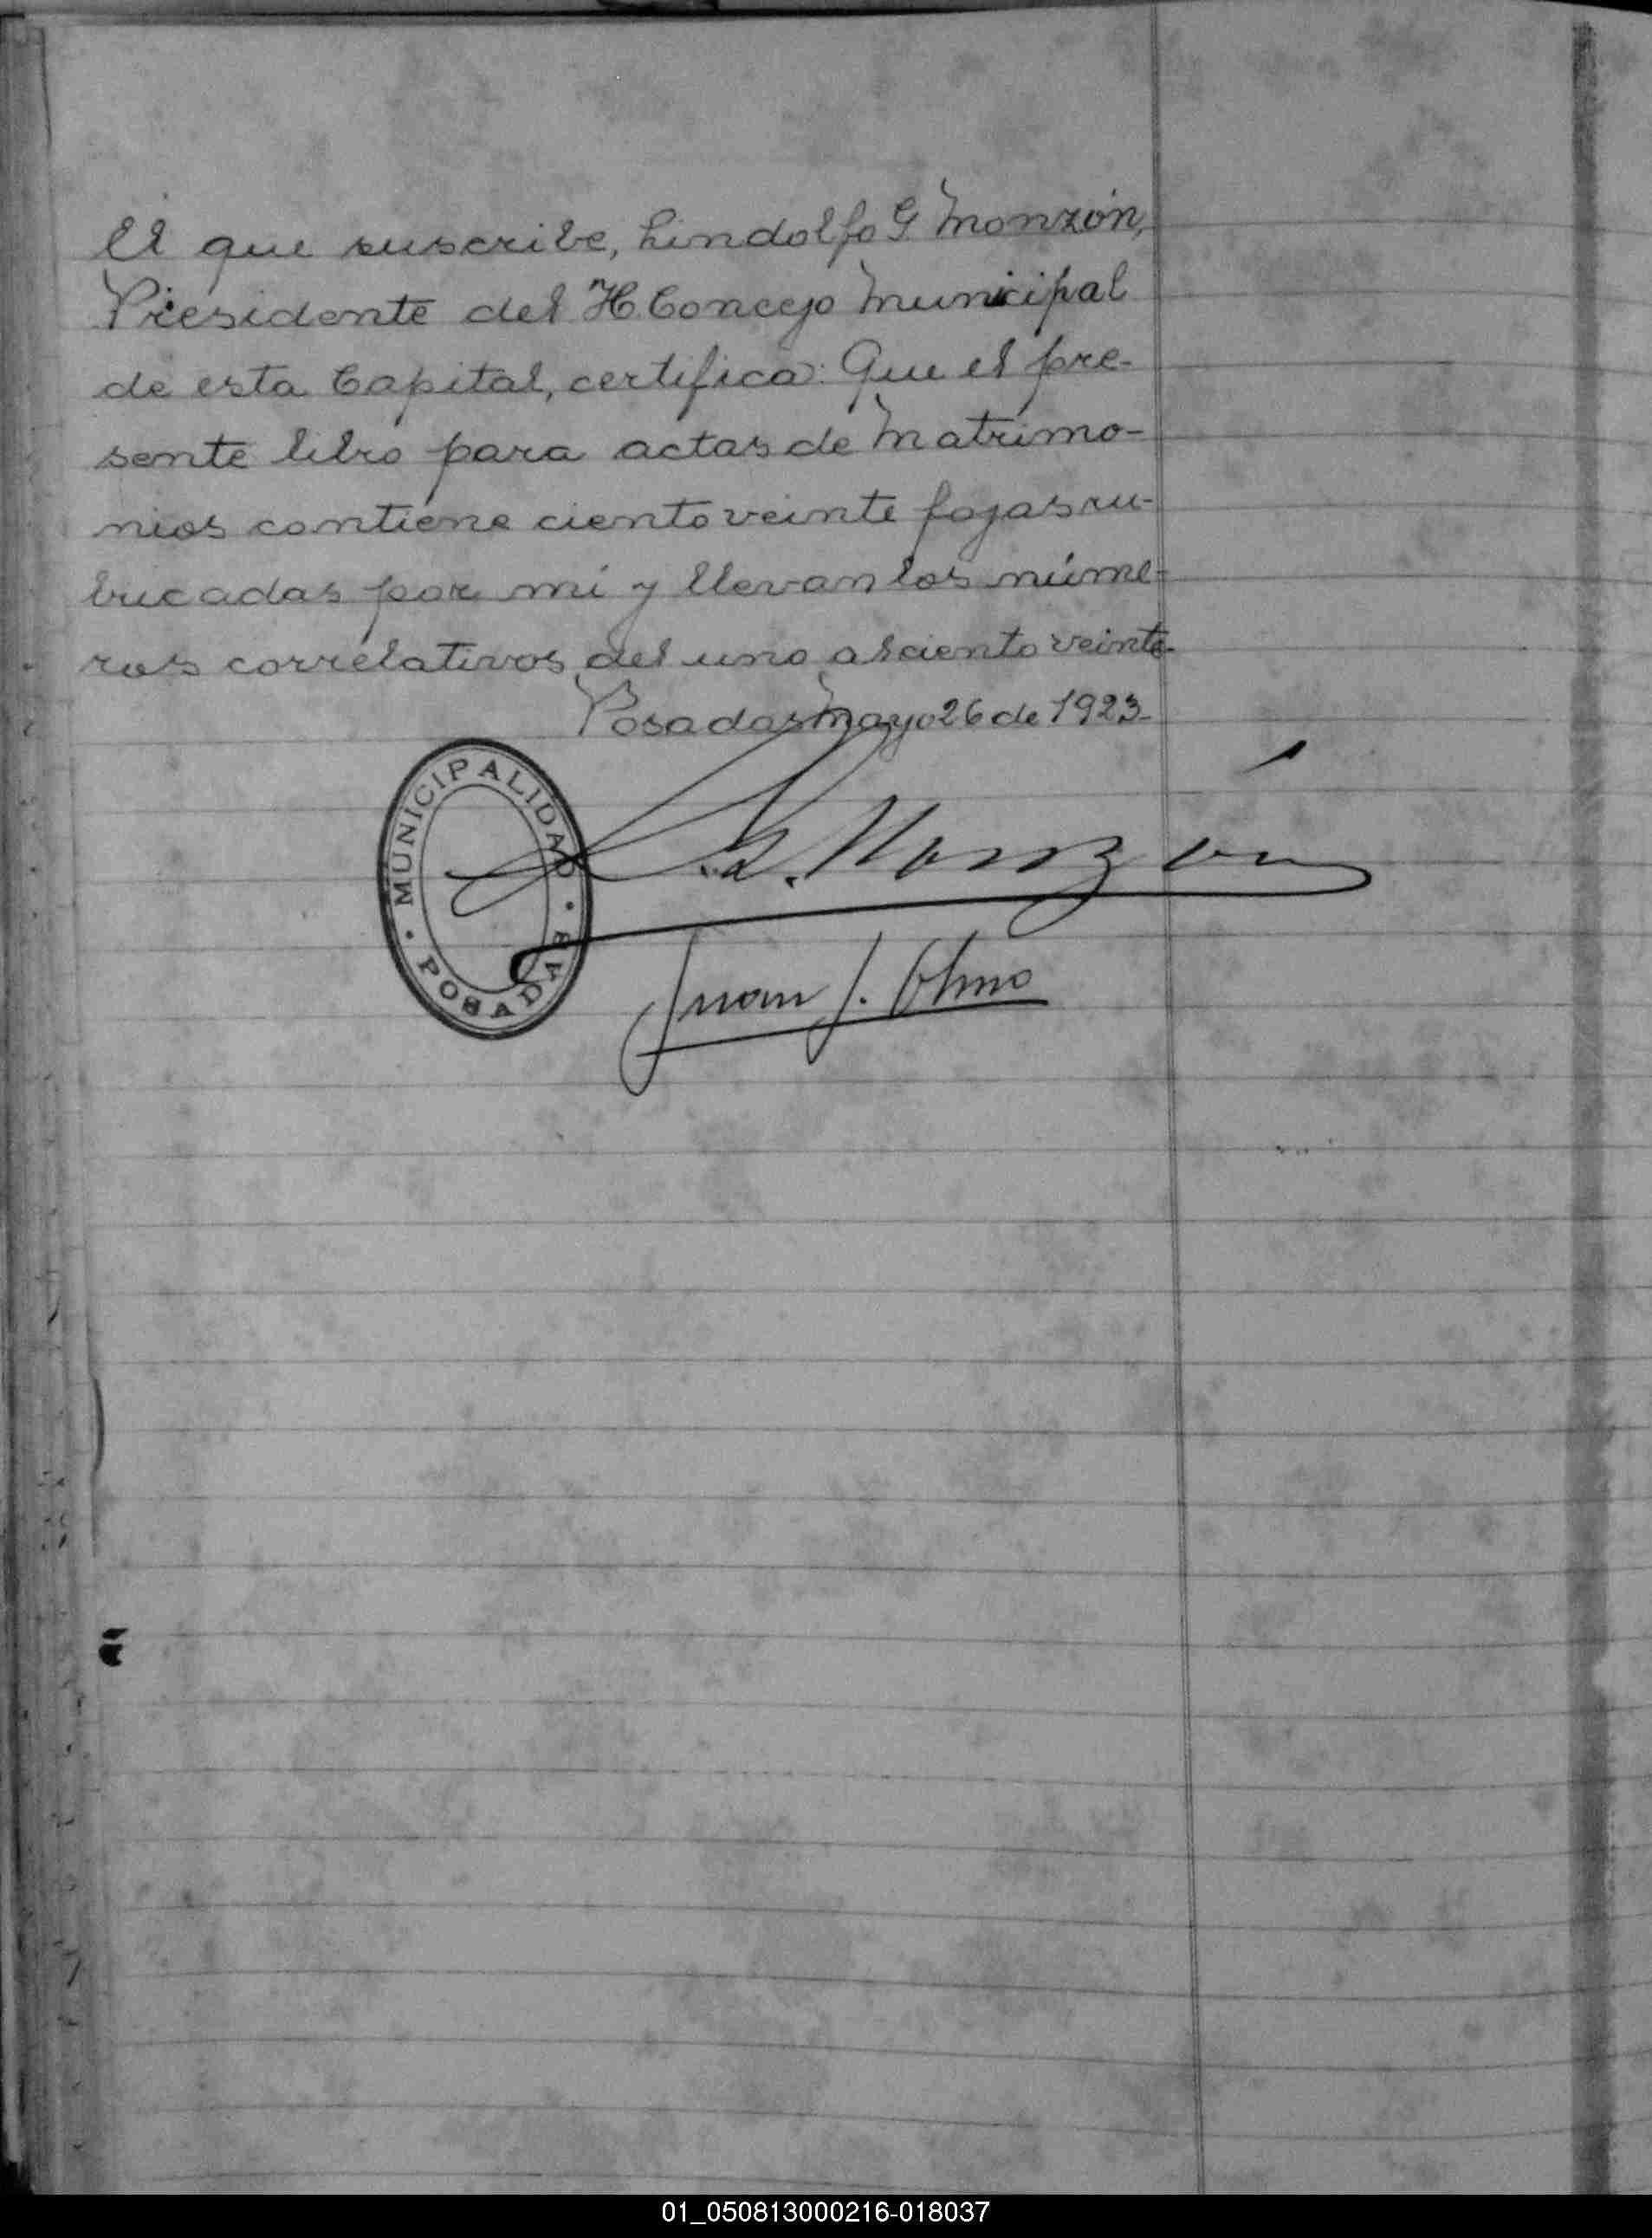 El que suscribe, Lindolfo G Monzón,
Presidente del H Concejo Municipal
de esta Capital, certifica: Que el pre-
sente libro para actas de Matrimo-
nios contiene ciento veinte fojas ru-
bricadas por mí y llevan los núme-
ros correlativos del uno al ciento veinte.
Posadas Mayo 26 de 1923.
MUNICIPALIDAD
L. G. Monzón
POSADAS
Juan J. Olmo
01_050813000216-018037